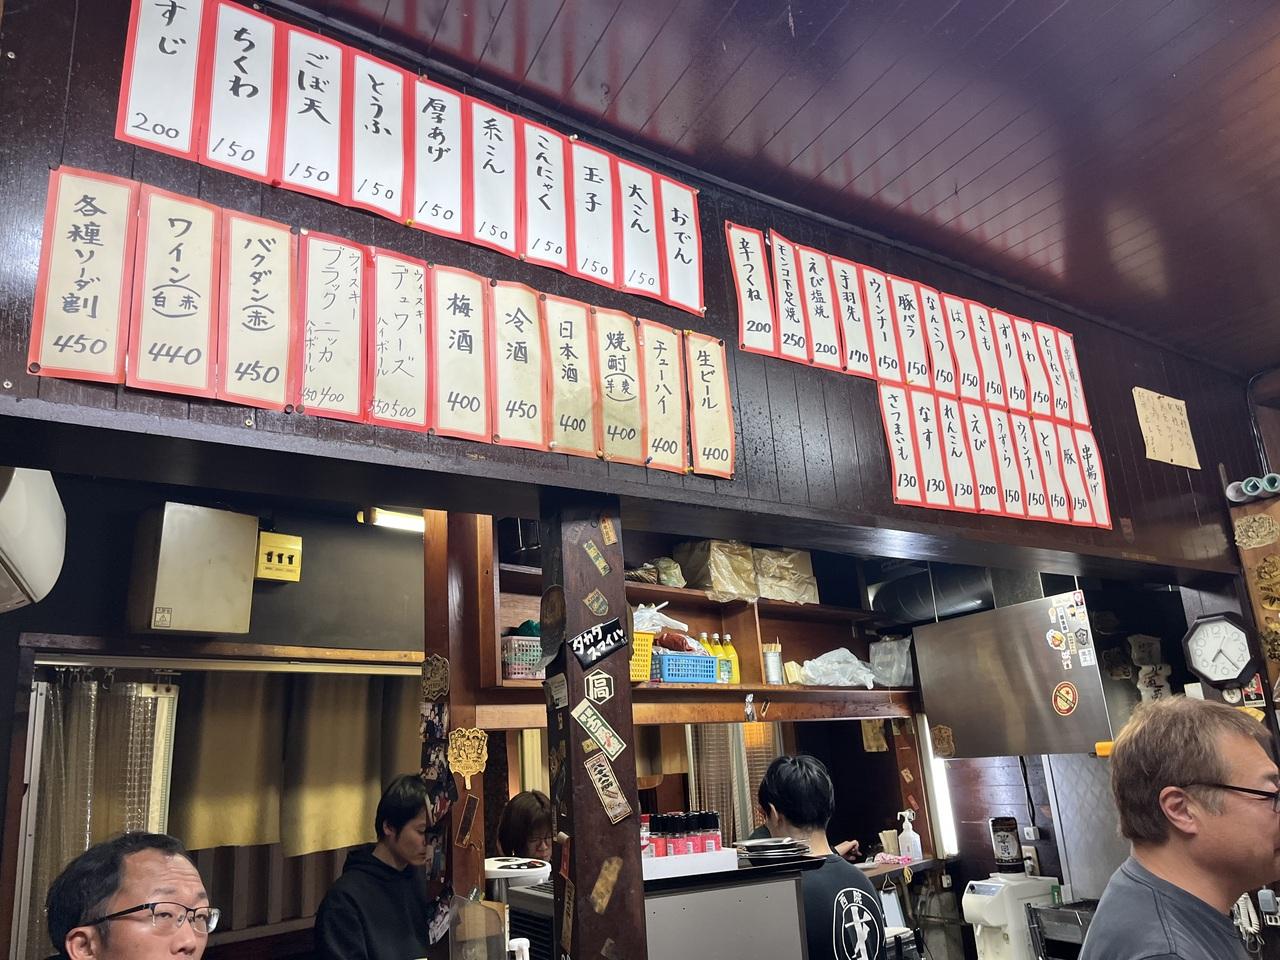 おでん
大こん 150
玉子 150
こんにゃく 150
糸こん 150
厚あげ 150
とうふ 150
ごぼ天 150
ちくわ 150
すじ 200
生ビール 400
チューハイ 400
焼酎(芋麦) 400
日本酒 400
冷酒 450
梅酒 400
ウィスキー デュワーズ ハイボール 550 500
ウィスキー ブラックニッカ ハイボール 450 400
バクダン(赤) 450
ワイン(赤白) 440
各種ソーダ割 450
串焼き
とりねぎ 150
かわ 150
ずり 150
きも 150
はつ 150
なんこつ 150
豚バラ 150
ウィンナー 150
手羽先 170
えび塩焼 200
モンゴ下足焼 250
辛つくね 200
串揚げ
豚 150
とり 150
ウィンナー 150
うずら 150
えび 200
れんこん 130
なす 130
さつまいも 130
タカタスマイル
高
西院